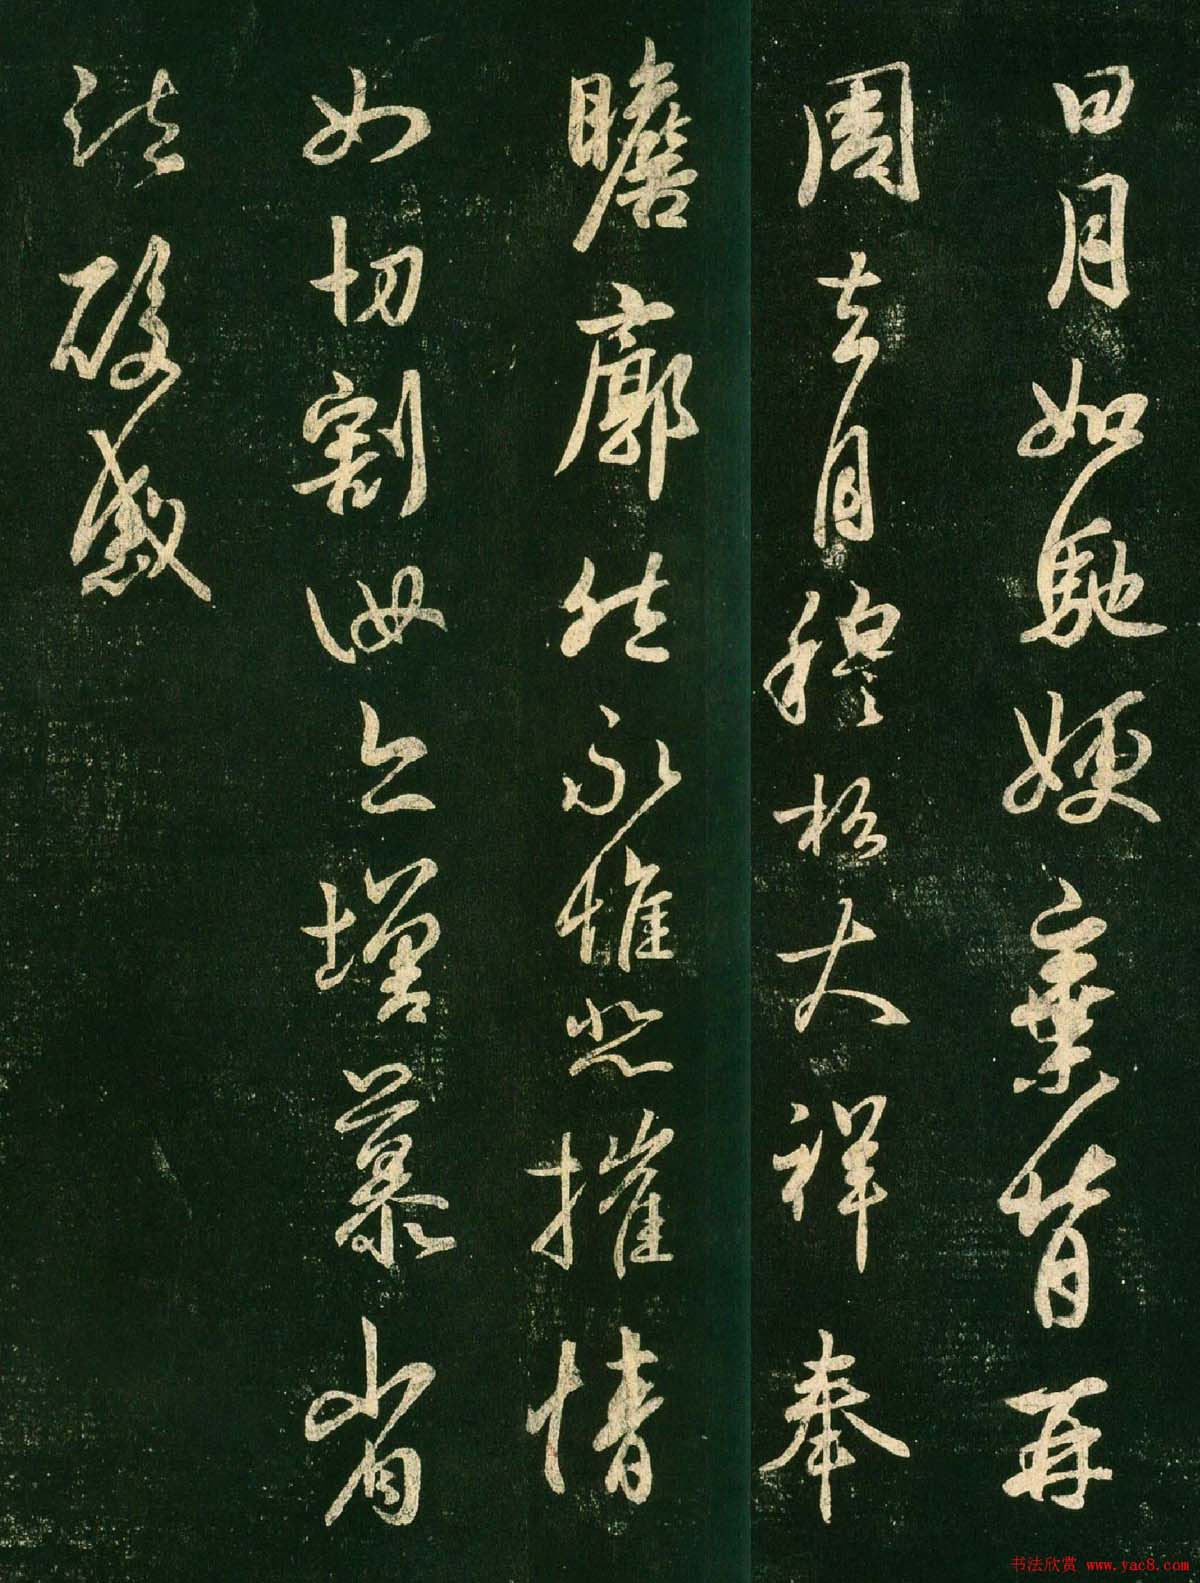 日月如馳嫂棄背再
周去月穆松大祥奉
瞻廓然永惟悲摧情
如切割汝亦增慕省
疏酸感
书法欣赏 www.yac8.com